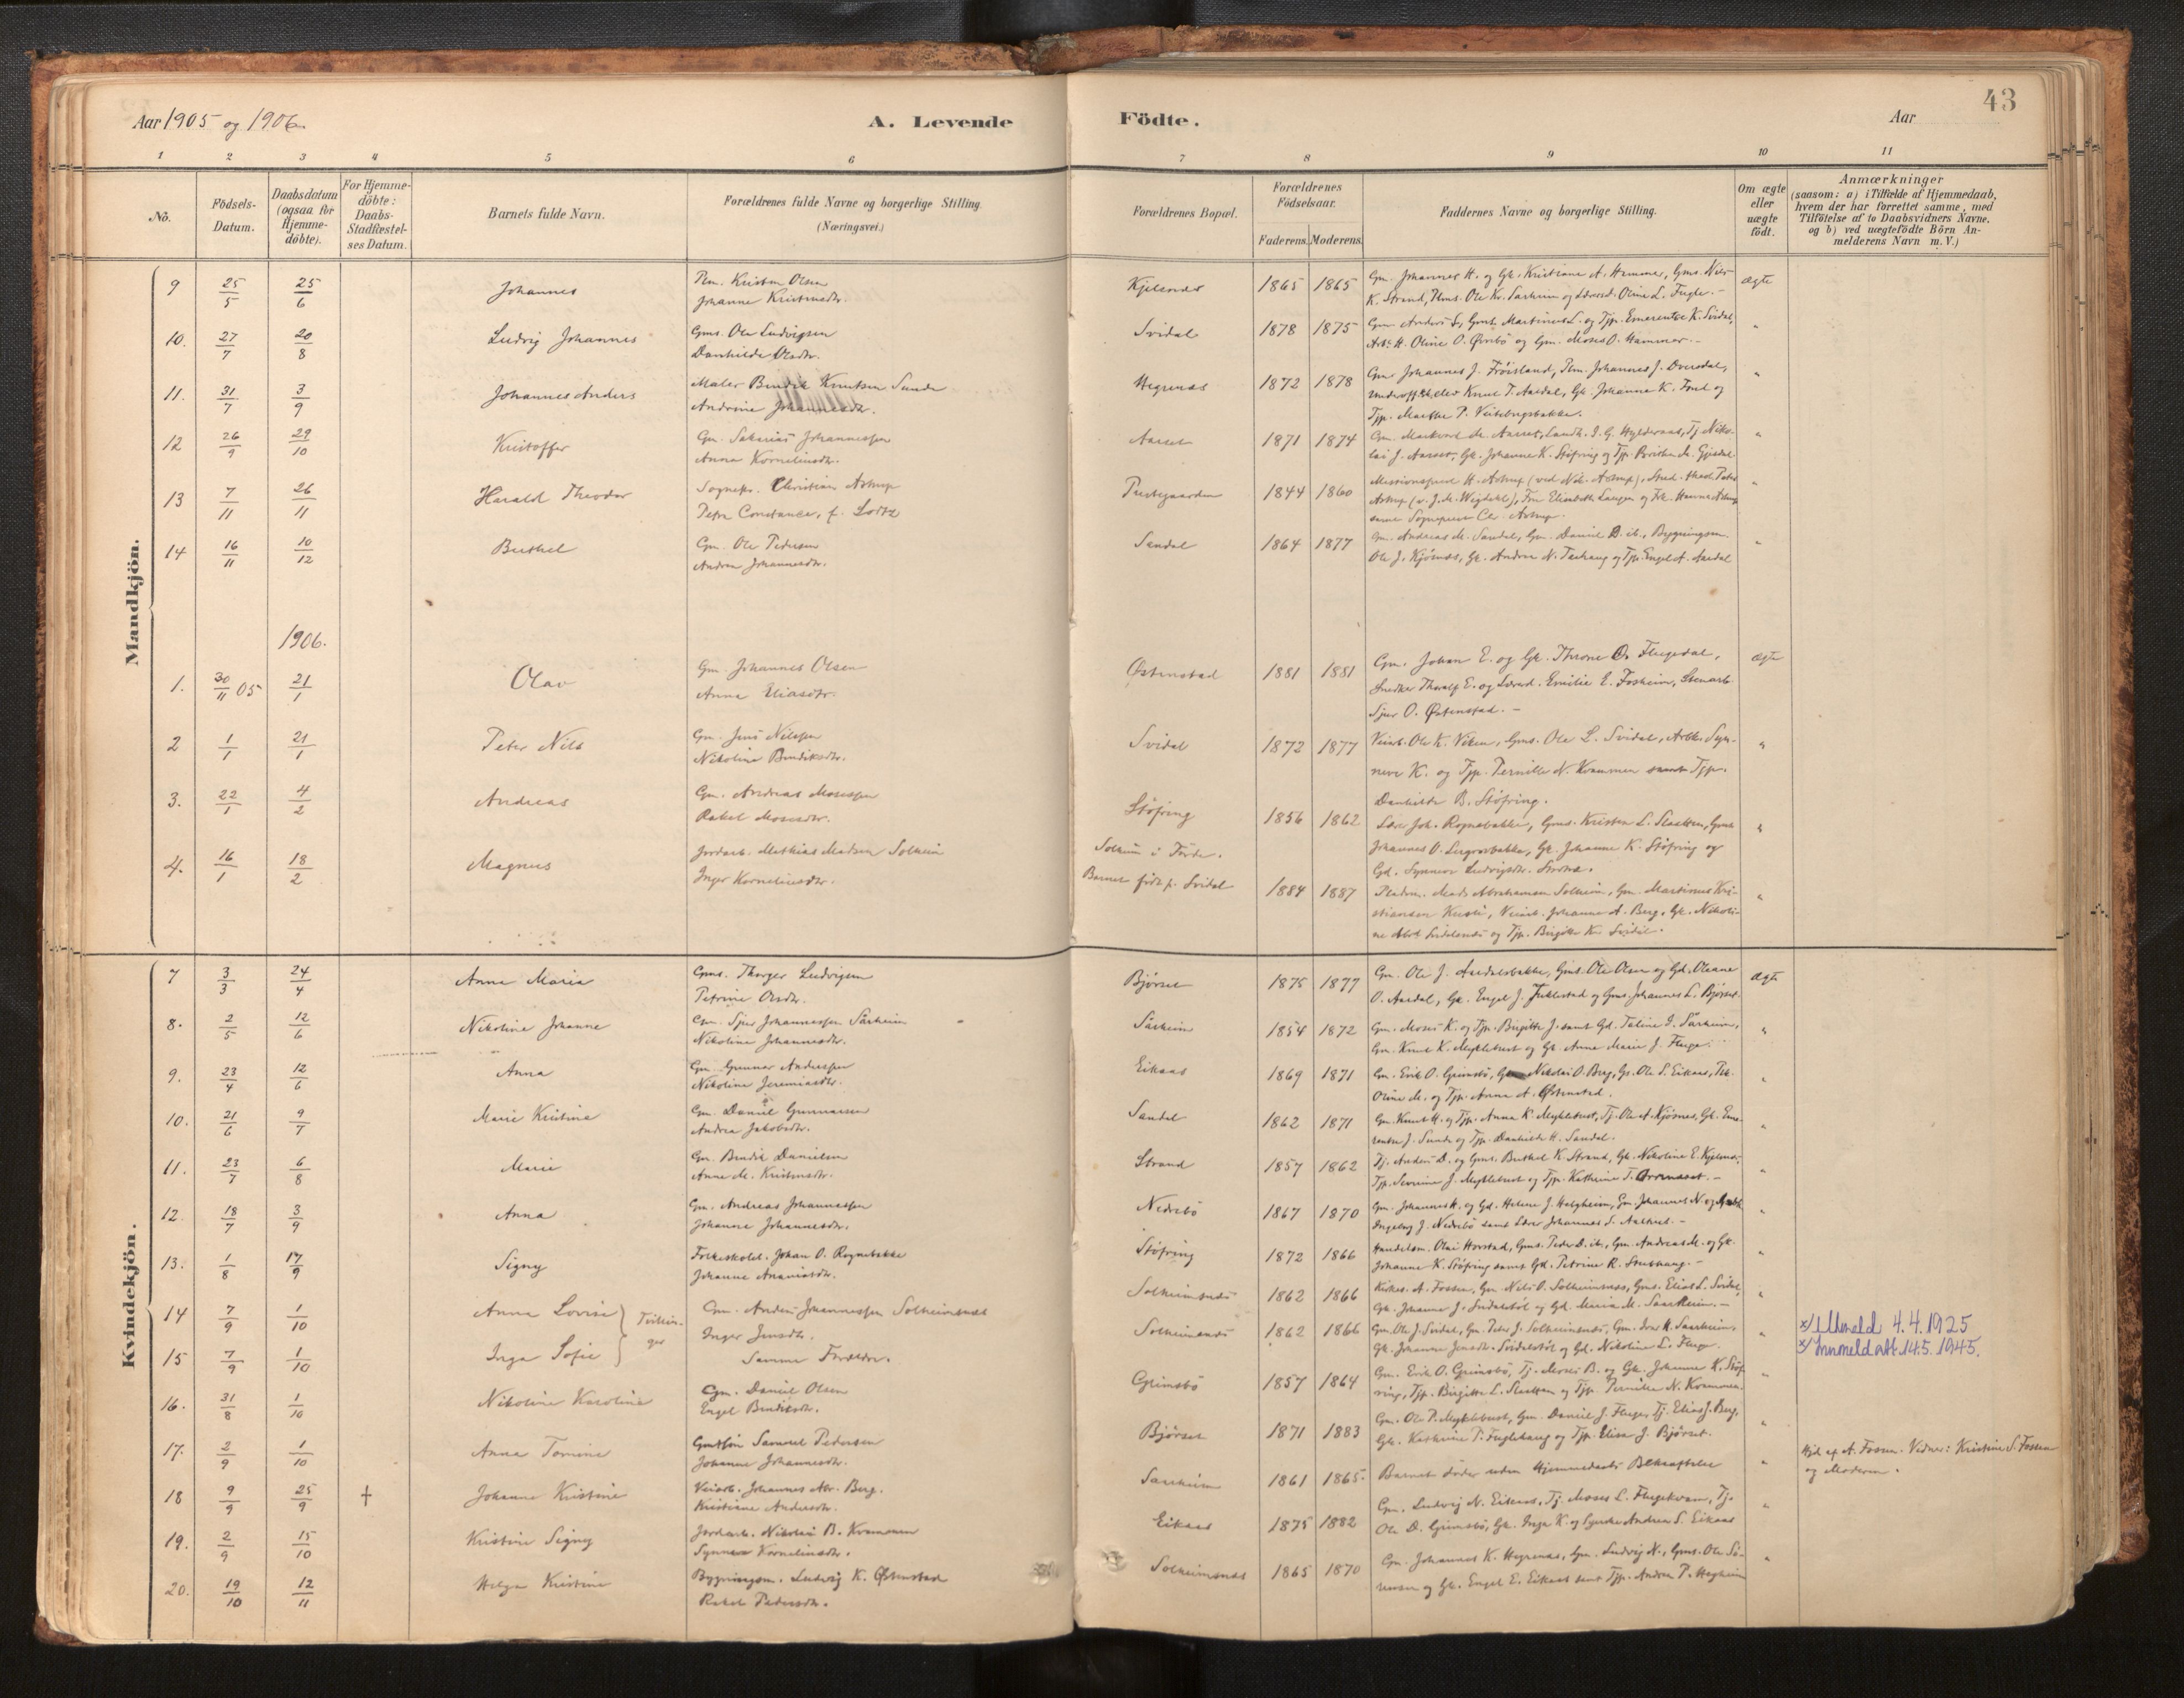 43
Aar 1905 og 1906.
A. Levende Födte.
Aar
1 2 3 4 5 6 7 8 9 10 11
No.
Födsels-
Datum.
Daabsdatum
(ogsaa for
Hjemme-
döbte).
For Hjemme-
döbte:
Daabs-
Stadfæstel-
ses Datum.
Barnets fulde Navn.
Forældrenes fulde Navne og borgerlige Stilling.
(Næringsvei.)
Forældrenes Bopæl.
Forældrenes
Födselsaar.
Faderens. Moderens.
Faddernes Navne og borgerlige Stilling.
Om ægte
eller
uægte
födt.
Anmærkninger
(saasom: a) i Tilfælde af Hjemmedaab,
hvem der har forrettet samme, med
Tilföielse af to Daabsvidners Navne,
og b) ved uægtefödte Börn An-
melderens Navn m. V.)
Mandkjön.
9 25/5 25/6 Johannes Kristen Olsen Kjelsnes 1865 1865 Gm. Johannes H. og Gk. Kristiane A. Hammer, Gms. Nils ægte
Johanne Kristensdtr. K. Strand, Ole Kr. Sarheim og Oline L. Fugle.-
10. 27/7 20/8 Ludvig Johannes Gms. Ole Ludvigsen Svidal 1878 1875 Gm. Anders L, Gms. Martinus L. og Tjp. Emerentse K. Svidal, "
Danhilde Olsdtr. Oline O. Øvrebö og Gm. Moses O. Hammer.-
11. 31/7 3/9 Johannes Anders Maler Bendik Knutsen Sunde Hegrenæs 1872 1878 Gm. Johannes J. Frøisland, Plm. Johannes J. "
Andrine Johannesdtr. Knut T. Aardal, Gk. Johanna K. og
Tjp. Marthe P.
12 26/9 29/10 Kristoffer Gm. Sakarias Johannessen Aasset 1871 1874 "
Anna Kornelinsdtr. Gk. Johanne K. Støfring og Tjp.
13 7/11 26/11 Harald Theodor Sognepr. Christian Astrup Prestegaarden 1844 1860 H. Astrup "
Petra Constance, f. Astrup Elisabeth
samt
14 16/11 10/12 Berthel Gm. Ole Pedersen Sandal 1864 1877 Gm. Andreas M. Sandal, Gm. Daniel D. ib., Bygningsm. "
Andrea Johannesdtr. Ole J. Kjørnæs, Gk. Andrea N. og Tjp. Engel A. Aardal
1906.
1. 30/11 05 21/1 Olav Gm. Johannes Olsen Østenstad 1881 1881 Gm. Johan E. og Gk. Throne O. Flugedal, ægte
Anna Eliasdtr. Snedker Thoralf E. og Emilie E. Fosheim, Stenarb.
Sjur O. Østenstad.-
2 1/1 21/1 Peter Nils Gm. Jens Nilssen Svidal 1872 1877 Veiarb. Ole K. Viken, Gms. Ole L. Svidal, Syn- "
Nikoline Bendiksdtr. neve K. og Tjp. Pernille N. Kvammen samt Tjp.
Danhilde B. Støfring.
3. 22/1 4/2 Andreas Gm. Andreas Mosessen Støfring 1856 1862 Lærer Joh. Rognebakke, Gms. Kristen L. "
Rakel Mosesdtr. Johannes O. Gk. Johanne K. Støfring og
Gd. Synneve Ludvigsdtr.
4. 16/1 18/2 Magnus Jordarb. Mathias Madsen Solheim Solheim i Førde.
Inger Kornelinsdtr. Barnet født p. Svidal 1884 1887 Mads Abrahamsen Solheim, Gm. Martinus Kri- "
stiansen Veiarb. Johannes A. Berg, Gk. Nikoli-
ne og Tjp. Birgitte K. Svidal.
Kvindekjön.
7 3/3 24/4 Anna Maria Gms. Thorger Ludvigsen Bjørset 1875 1877 Gm. Ole J. Aardalsbakke, Gms. Ole Olsen og Gd. Oleane ægte
Petrine Olsdtr. O. Aardal, Gk. Engel J. og Gms. Johannes L. Bjørset.
8. 2/5 12/6 Nikoline Johanne Gm. Sjur Johannessen Sårheim Sårheim 1854 1872 Gm. Moses K. og Tjp. Birgitte J. samt Gd. Taline I. Sårheim, "
Nikoline Johannesdtr. Gm. Knut K. Myklebust og Gk. Anne Marie J. Fluge.
9. 23/4 12/6 Anna Gm. Gunnar Anderssen Eikaas 1869 1871 Gm. Erik O. Grimsbö, Nikolai O. Berg, Gs. Ole S. Eikaas, "
Nikoline Jeremiasdtr. Oline M. og Tjp. Anna A. Østenstad.
10. 21/6 9/7 Marie Kristine Gm. Daniel Gunnarsen Sandal 1862 1871 Gm. Knut H. og Tjp. Anna K. Myklebust, Tj. Ole A. Kjøsnes, Gk. Eme- "
Andrea Jakobsdtr. rentse J. Sunde og Tjp. Danhilde H. Sandal.
11. 23/7 6/8 Marie Gm. Bendik Danielsen Strand 1857 1862 Tj. Anders D. og Gms. Berthel K. Strand, Gk. Nikoline E. Kjelsnes, "
Anne M. Kristensdtr. Tjp. Severine J. Myklebust og Tjp. Kathrine T.
12. 18/7 3/9 Anna Gm. Andreas Johannessen Nedrebö 1867 1870 Gm. Johannes K. og Gd. Helene J. Helgheim, Gm. Johannes N. og "
Johanne Johannesdtr. Ingeborg J. Nedrebö samt Lærer Johannes S. Aarhus.-
13. 1/8 17/9 Signy Folkeskolel. Johan O. Rognebakke Støfring 1872 1866 Handelsm. Olai Horstad, Gms. Peder D. ib., Gm. Andreas M. og Gk. "
Johanne Ananiasdtr. Johanne K. Støfring samt Gd. Petrine R.
14 7/9 1/10 Anna Lovise Tvillin- Gm. Anders Johannessen Solheimsnæs Solheimsnæs 1862 1866 Kirkes. A. Fossen, Gm. Nils O. Solheimsnæs, Gms. Elias L. Svidal, "
ger Inger Jensdtr. Gk. Johanne J. og Gd. Maria M. Saarheim.-
15 7/9 1/10 Inga Sofie Samme Forældre. Solheimsnæs 1862 1866 Gm. Ole J. Svidal, Gm. Peder J. Solheimsnæs, Gm. Iver H. Saarheim, " x/ Utmeld 4.4.1925
Gk. Johanne Jensdtr. og Gd. Nikoline L. Fluge. x/ Innmeld att. 14.5.1945.
16. 31/8 1/10 Nikoline Karoline Gm. Daniel Olsen Grimsbö 1857 1864 Gm. Erik O. Grimsbö, Tj. Moses B. og Gk. Johanne K. Støf- "
Engel Bendiksdtr. ring, Tjp. Birgitte L. og Tjp. Pernille N. Kvammen.
17. 2/9 1/10 Anna Tomine Samuel Pedersen Bjørset 1871 1883 Gm. Ole P. Myklebust, Gm. Daniel J. Fluge, Tj. Elias J. Berg, "
Johanne Johannesdtr. Gk. Kathrine T. Fuglehaug og Tjp. Elisa J. Bjørset.
18 9/9 25/9 † Johanne Kristine Veiarb. Johannes Abr. Berg. Saarheim 1861 1865. Barnet døde uden Hjemmedaabs Bekræftelse " Hjd. af A. Fossen. Vidner: Kristine S. Fossen
Kristiane Andersdtr. og Moderen.
19. 2/9 15/10 Kristine Signy Jordarb. Nikolai B. Kvammen Eikaas 1875 1882 Gm. Ludvig N. Eikaas, Tj. Moses L. Flugekvam, Tj. "
Synneve Kornelinsdtr. Ole D. Grimsbö, Gk. Inga K. og Syerske Andrea S. Eikaas
20. 19/10 12/11 Helga Kristine Bygningsm. Ludvig K. Østenstad Solheimsnæs 1865 1870 Gm. Johannes K. Hegrenæs, Gm. Ludvig N., Gms. Ole Sö- "
Rakel Pedersdtr. rensen og Gk. Engel E. Eikaas samt Tjp. Andrea P.